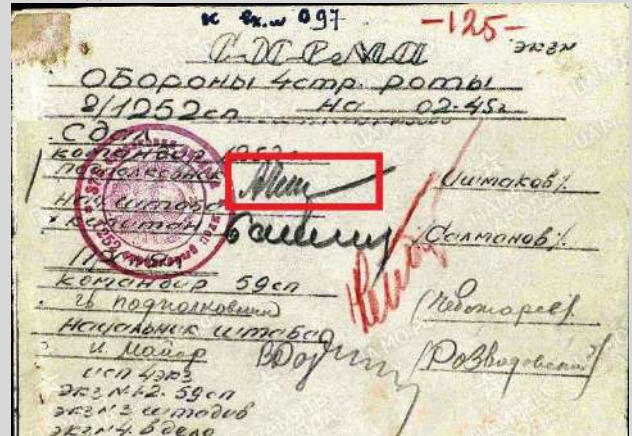 к вх.№ 097
-125-
экз№
СХЕМА
Обороны 4стр. роты
2/1252сп на 02.45г
Сдал
командир 1252сп
подполковник /Ушмаков/.
Нач. штаба
капитан /Салманов/.
Принял
командир 59сп
гв подполковник /Чеботарев/.
Начальник штаба
и. майор /Розвадовский/
исп 4экз
экз№1-2. 59сп
экз№3 штадив
экз№4. в дело